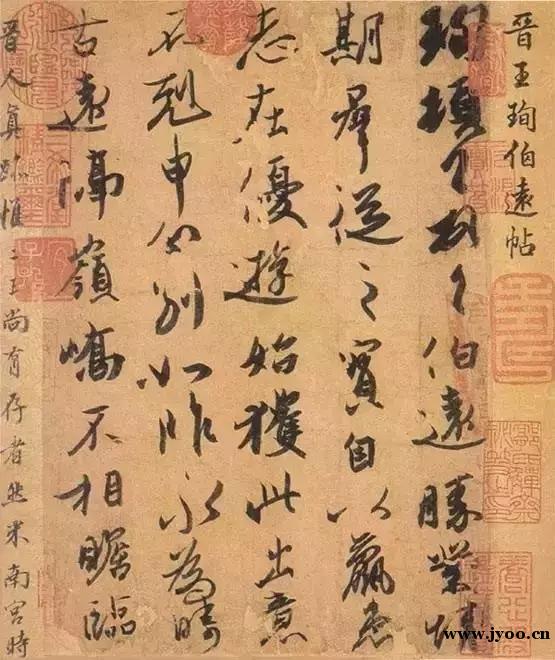 晉王珣伯遠帖
珣頓首頓首伯遠勝業情
期群從之寶自以羸患
志在優遊始獲此出意
不剋申分別如昨永為疇
古遠隔嶺嶠不相瞻臨
晉人真跡惟二王尚有存者然米南宮時
www.jyoo.cn